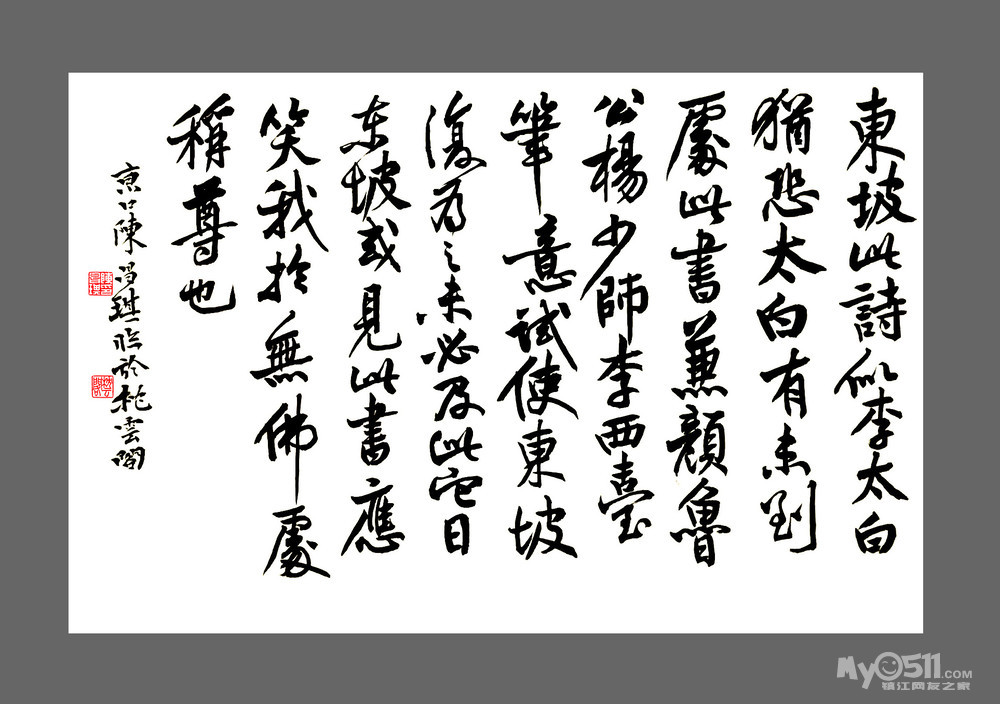 東坡此詩似李太白
猶恐太白有未到
處此書兼顏魯
公楊少師李西臺
筆意試使東坡
復為之未必及此它日
东坡或見此書應
笑我於無佛處
稱尊也
京口陳昌琪臨於桃雲閣
My0511.COM
镇江网友之家